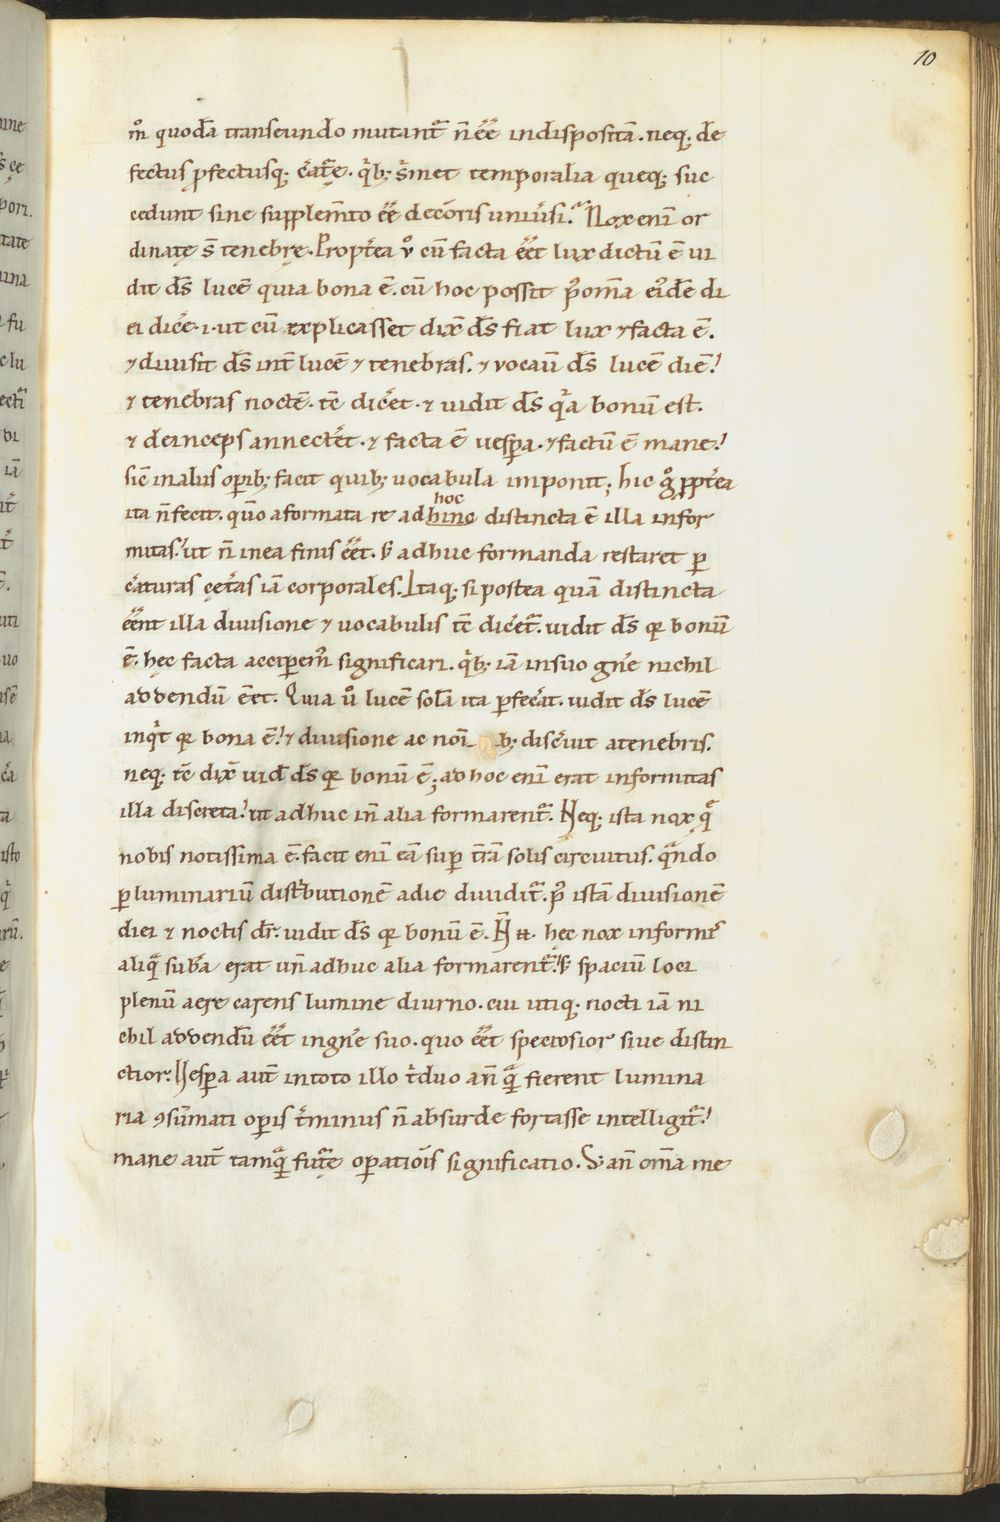 10
m̊ quodā transeundo mutantᷣ. n̄ ee̅ indispositā. neq; de
fectus p̱fectusq; c̄atę. qͥb; s̄met temporalia queq; suc
cedunt sine supplem̄to ee̅ decōris uniūsi. Nox eni̅ or
dinatę s̄ tenebrę. Propt̄ea v̊ cu̅ facta ee̅t lux dictu̅ e̅ ui
dit d̅s luce̅ quia bona e̅. cu̅ hoc possit p̊ om̅a ei'de̅ di
ei dic̄e .i. ut cu̅ explicasset dix̅ d̅s fiat lux ⁊ facta e̅.
⁊ diuisit d̅s int̅ luce̅ ⁊ tenebras. ⁊ vocau̅ d̅s luce̅ die̅!
⁊ tenebras nocte̅. te̅ dic̄et. ⁊ uidit d̅s qͥa bonu̅ est.
⁊ deinceps annect̄et. ⁊ facta e̅ uesꝑa. ⁊ factu̅ e̅ mane!
sic̅ in aliis oꝑib; facit quib; uocabula imponit; hic g̊ ꝓpt̄ea
ita n̅ fecit. quo̅ a formata re ad hinc distincta e̅ illa infor
hoc
mitas! ut n̅ in ea finis ee̅t. s; adhuc formanda restaret ꝑ
c̄aturas cęt̄as ia̅ corporales. Itaq; si postea qua̅ distincta
ee̅nt illa diuisione ⁊ uocabulis te̅ dic̄etᷣ. uidit d̅s qꝛ bonu̅
e̅. hęc facta acciꝑem̊ significari. qͥb; ia̅ in suo gn̄e nichil
addendu̅ ee̅t. Quia ů luce̅ sola̅ ita ꝑfec̄at. uidit d̅s luce̅
inqͥt qꝛ bona e̅! ⁊ diuisione ac noi̅ b; disc̄uit a tenebris.
neq; te̅ dix̅ uid̅ d̅s qꝛ bonu̅ e̅; ad hoc eni̅ erat informitas
illa discreta! ut adhuc in̅ alia formarentᷣ. Neq; ista nox qᷓ
nobis notissima e̅. facit eni̅ ea̅ suꝑ t̅ra̅ solis circuitus. qᷓndo
ꝑ luminariu̅ distͥbutione̅ a die diuiditᷣ. p̊ ista̅ diuisione̅
diei ⁊ noctis dr̅. uidit d̅s qꝛ bonu̅ e̅. N̅ .n. hęc nox informis
aliqᷓ sub̅a erat un̅ adhuc alia formarentᷣ! s; spaciu̅ loci
plenu̅ aere carens lumine diurno. cui utiq; nocti ia̅ ni
chil addendu̅ ee̅t in gn̄e suo. quo ee̅t speciosior siue distin
ctior. Uesꝑa aut̅ in toto illo tͥduo an̅ qᷓ fierent lumina
ria ꝯsu̅mati oꝑis t̄minus n̅ absurde fortasse intelligitᷣ!
mane aut̅ tamqᷓ fut̅ę oꝑatio̅is significatio. S; an̅ om̅a me